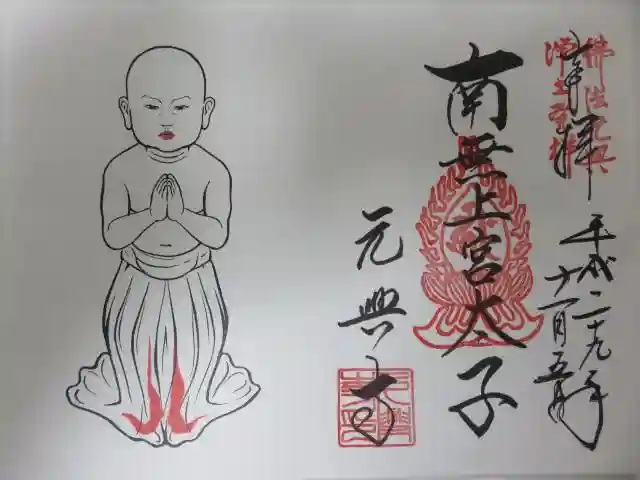 佛法元興
奉拝
平成二十九年
十一月五日
南無上宮太子
元興寺